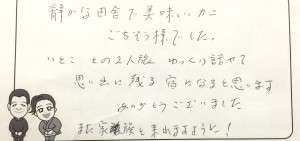 静かな田舎で美味しいカニ
ごちそう様でした。
いとことの2人旅 ゆっくり話せて
思い出に残る宿になると思います
ありがとうございました
また家族と来れますように!